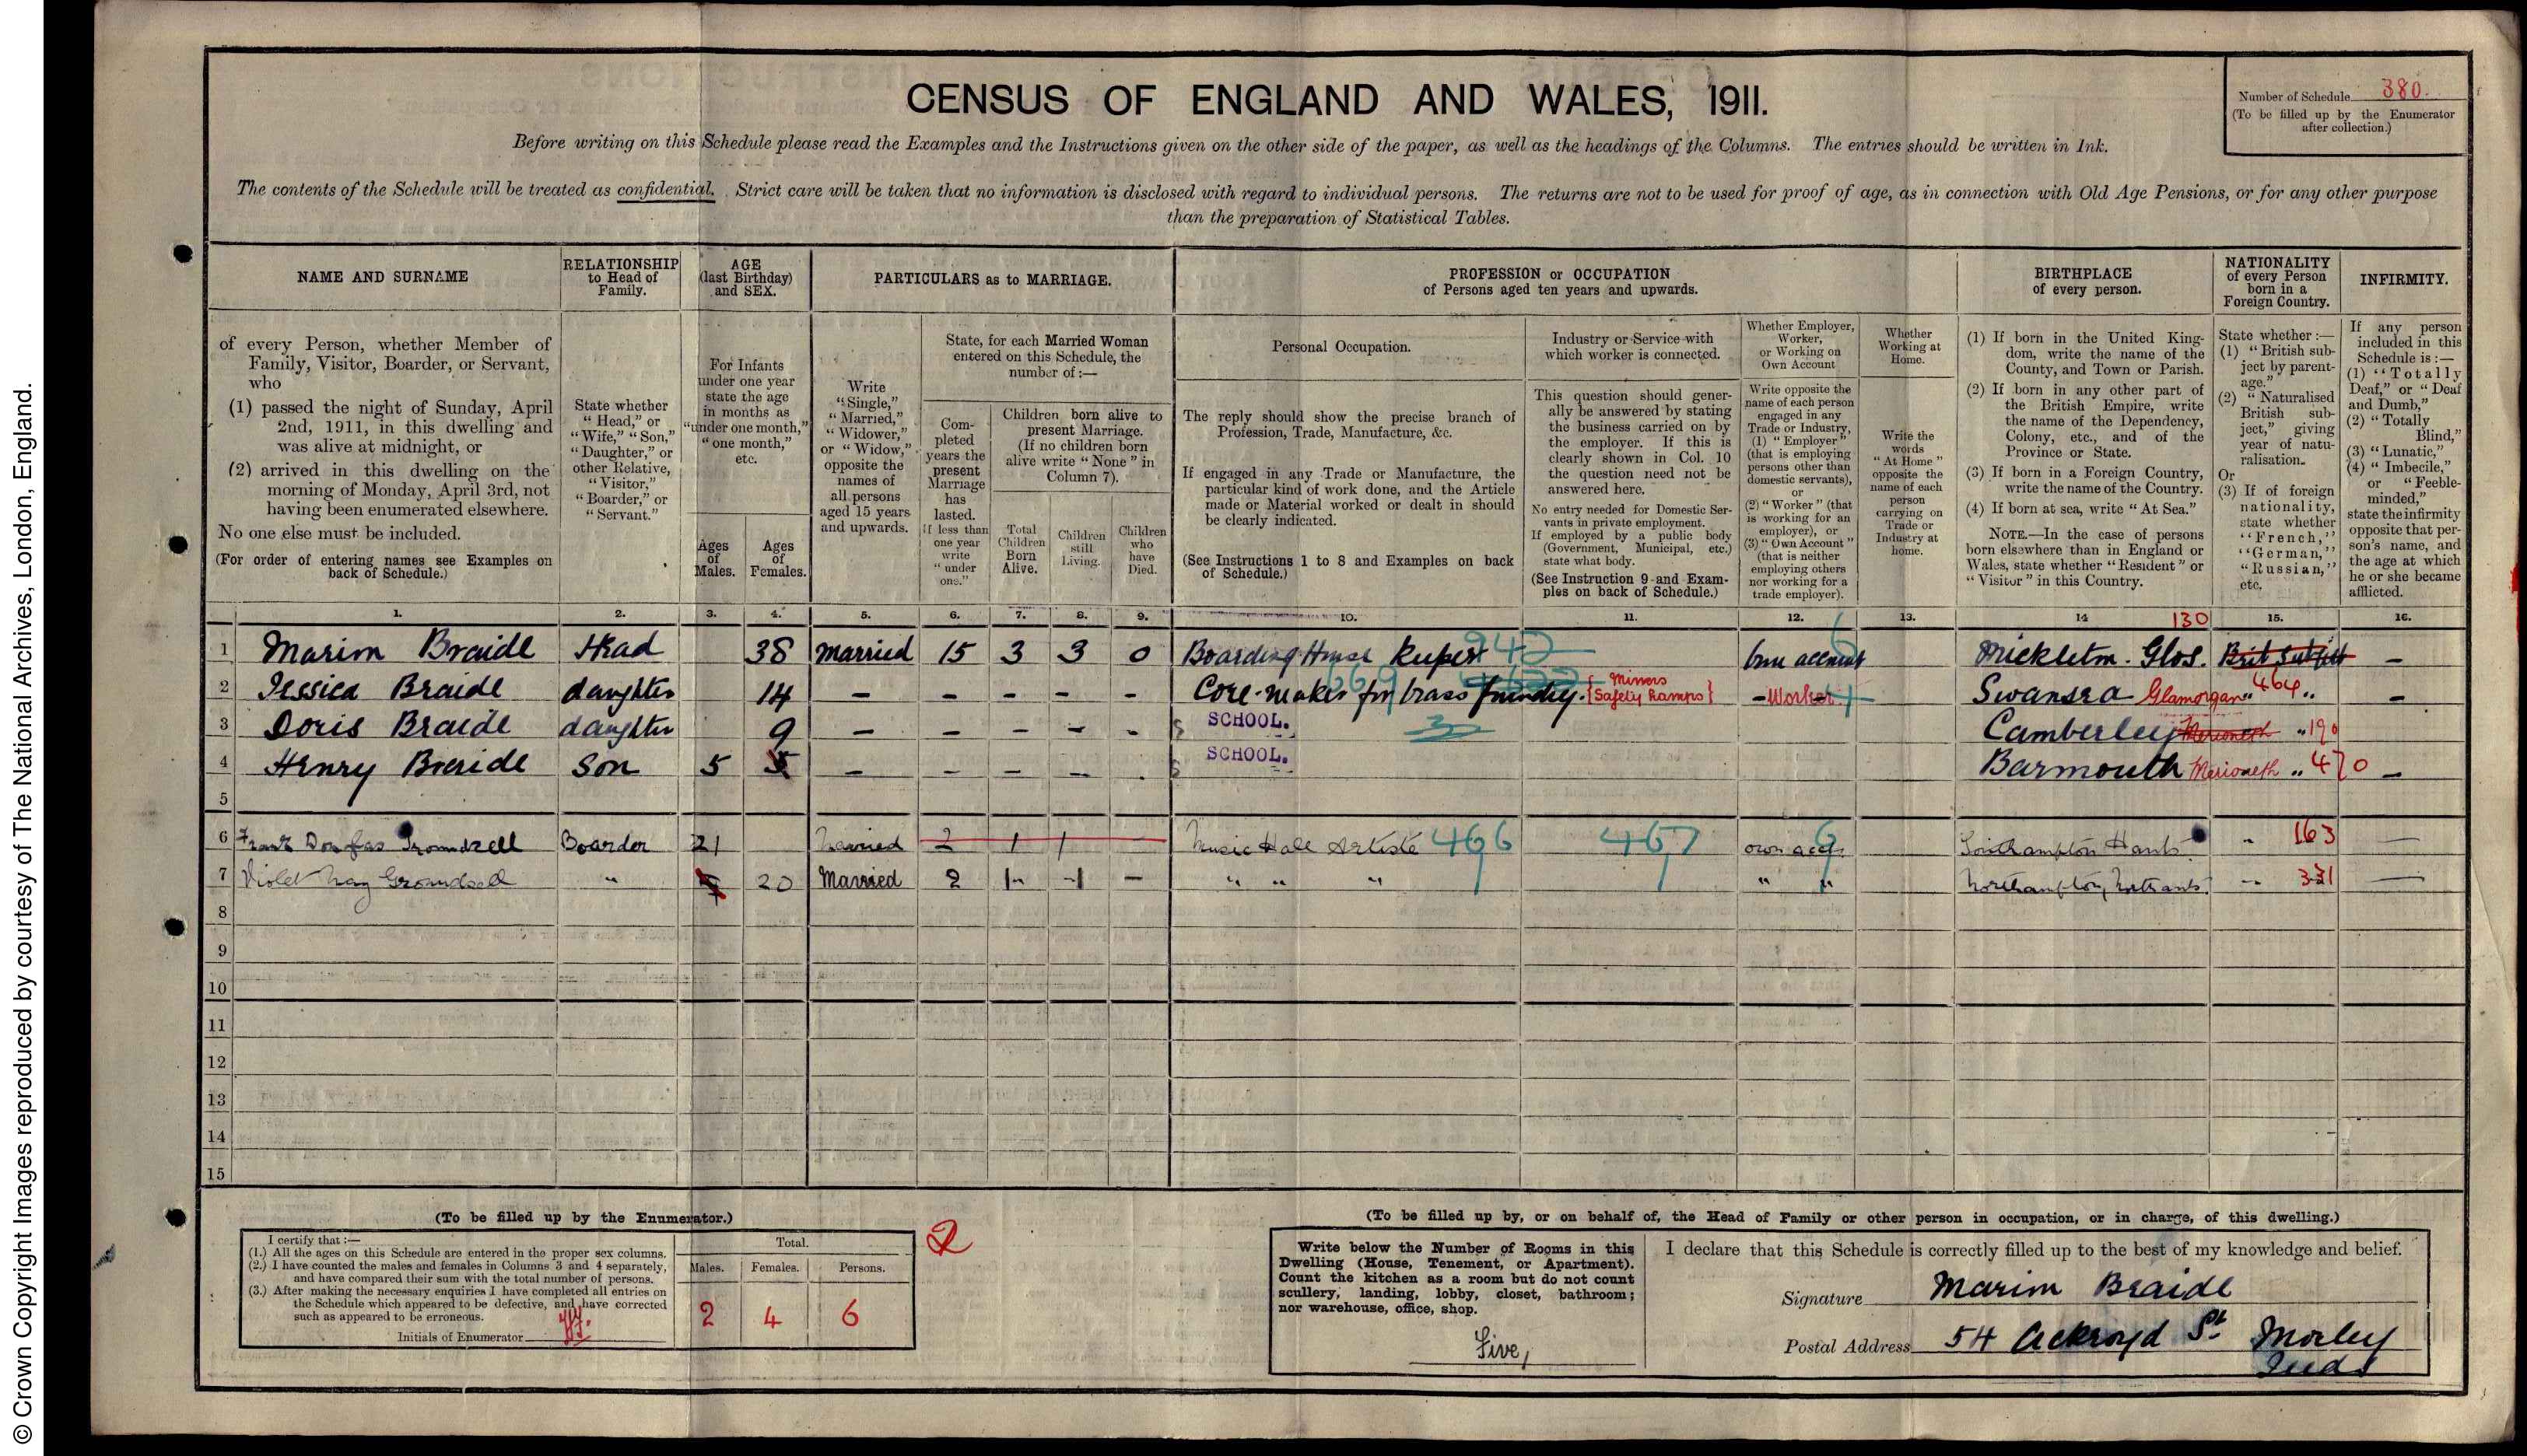 © Crown Copyright Images reproduced by courtesy of The National Archives, London, England.
CENSUS OF ENGLAND AND WALES, 1911.
Number of Schedule 380.
(To be filled up by the Enumerator
after collection.)
Before writing on this Schedule please read the Examples and the Instructions given on the other side of the paper, as well as the headings of the Columns. The entries should be written in Ink.
The contents of the Schedule will be treated as confidential. Strict care will be taken that no information is disclosed with regard to individual persons. The returns are not to be used for proof of age, as in connection with Old Age Pensions, or for any other purpose
than the preparation of Statistical Tables.
NAME AND SURNAME
of every Person, whether Member of
Family, Visitor, Boarder, or Servant,
who
(1) passed the night of Sunday, April
2nd, 1911, in this dwelling and
was alive at midnight, or
(2) arrived in this dwelling on the
morning of Monday, April 3rd, not
having been enumerated elsewhere.
No one else must be included.
(For order of entering names see Examples on
back of Schedule.)
RELATIONSHIP
to Head of
Family.
State whether
"Head," or
"Wife," "Son,"
"Daughter," or
other Relative,
"Visitor,"
"Boarder," or
"Servant."
AGE
(last Birthday)
and SEX.
For Infants
under one year
state the age
in months as
"under one month,"
"one month,"
etc.
Ages
of
Males.
Ages
of
Females.
PARTICULARS as to MARRIAGE.
Write
"Single,"
"Married,"
"Widower,"
or "Widow,"
opposite the
names of
all persons
aged 15 years
and upwards.
State, for each Married Woman
entered on this Schedule, the
number of :—
Com-
pleted
years the
present
Marriage
has
lasted.
If less than
one year
write
"under
one."
Children born alive to
present Marriage.
(If no children born
alive write "None" in
Column 7).
Total
Children
Born
Alive.
Children
still
Living.
Children
who
have
Died.
PROFESSION or OCCUPATION
of Persons aged ten years and upwards.
Personal Occupation.
The reply should show the precise branch of
Profession, Trade, Manufacture, &c.
If engaged in any Trade or Manufacture, the
particular kind of work done, and the Article
made or Material worked or dealt in should
be clearly indicated.
(See Instructions 1 to 8 and Examples on back
of Schedule.)
Industry or Service with
which worker is connected.
This question should gener-
ally be answered by stating
the business carried on by
the employer. If this is
clearly shown in Col. 10
the question need not be
answered here.
No entry needed for Domestic Ser-
vants in private employment.
If employed by a public body
(Government, Municipal, etc.)
state what body.
(See Instruction 9 and Exam-
ples on back of Schedule.)
Whether Employer,
Worker,
or Working on
Own Account
Write opposite the
name of each person
engaged in any
Trade or Industry,
(1) "Employer"
(that is employing
persons other than
domestic servants),
or
(2) "Worker" (that
is working for an
employer), or
(3) "Own Account"
(that is neither
employing others
nor working for a
trade employer).
Whether
Working at
Home.
Write the
words
"At Home"
opposite the
name of each
person
carrying on
Trade or
Industry at
home.
BIRTHPLACE
of every person.
(1) If born in the United King-
dom, write the name of the
County, and Town or Parish.
(2) If born in any other part of
the British Empire, write
the name of the Dependency,
Colony, etc., and of the
Province or State.
(3) If born in a Foreign Country,
write the name of the Country.
(4) If born at sea, write "At Sea."
NOTE.—In the case of persons
born elsewhere than in England or
Wales, state whether "Resident" or
"Visitor" in this Country.
NATIONALITY
of every Person
born in a
Foreign Country.
State whether :—
(1) "British sub-
ject by parent-
age."
(2) "Naturalised
British sub-
ject," giving
year of natu-
ralisation.
Or
(3) If of foreign
nationality,
state whether
"French,"
"German,"
"Russian,"
etc.
INFIRMITY.
If any person
included in this
Schedule is :—
(1) "Totally
Deaf," or "Deaf
and Dumb,"
(2) "Totally
Blind,"
(3) "Lunatic,"
(4) "Imbecile,"
or "Feeble-
minded,"
state the infirmity
opposite that per-
son's name, and
the age at which
he or she became
afflicted.
1. 2. 3. 4. 5. 6. 7. 8. 9. 10. 11. 12. 13. 14 130 15. 16.
1 Marion Braide Head 38 Married 15 3 3 0 Boarding House Keeper 942 own account 6 Mickleton. Glos. Brit Subject —
2 Jessica Braide daughter 14 — — — — — Core-maker for brass foundry. {Miners Safety Lamps} — Worker Swansea Glamorgan " 464 " —
3 Doris Braide daughter 9 — — — — - SCHOOL. 3 Camberley Merioneth " 190
4 Henry Braide Son 5 5 — — — — . SCHOOL. Barmouth Merioneth " 470 —
5
6 Frank Douglas Groundsell Boarder 21 Married 2 1 1 — Music Hall Artiste 466 467 own acct. 6 Southampton Hants. " 163 —
7 Violet May Groundsell " 20 Married 2 1 1 — " " " " " Northampton, Northants. " 331 —
8
9
10
11
12
13
14
15
(To be filled up by the Enumerator.)
I certify that :—
(1.) All the ages on this Schedule are entered in the proper sex columns.
(2.) I have counted the males and females in Columns 3 and 4 separately,
and have compared their sum with the total number of persons.
(3.) After making the necessary enquiries I have completed all entries on
the Schedule which appeared to be defective, and have corrected
such as appeared to be erroneous.
Initials of Enumerator
Total.
Males. Females. Persons.
2 4 6
2
(To be filled up by, or on behalf of, the Head of Family or other person in occupation, or in charge, of this dwelling.)
Write below the Number of Rooms in this
Dwelling (House, Tenement, or Apartment).
Count the kitchen as a room but do not count
scullery, landing, lobby, closet, bathroom;
nor warehouse, office, shop.
Five,
I declare that this Schedule is correctly filled up to the best of my knowledge and belief.
Signature Marion Braide
Postal Address 54 Ackroyd St Morley
Leeds